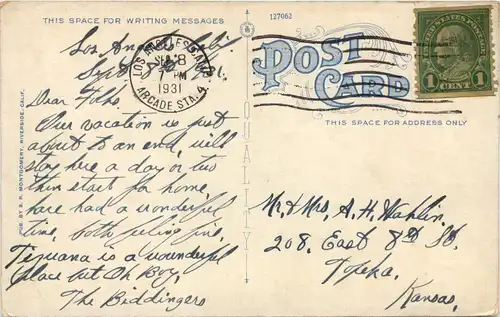 THIS SPACE FOR WRITING MESSAGES
127062
POST CARD
THIS SPACE FOR ADDRESS ONLY
QUALITY
PUB. BY S. R. MONTGOMERY, RIVERSIDE, CALIF.
UNITED STATES POSTAGE
1 CENT 1
LOS ANGELES, CALIF.
SEP 8
7 PM
1931
ARCADE STA. 4
Los Angeles Calif
Sept 8
Dear Folks,
Our vacation is just
about to an end, will
stay here a day or two
then start for home,
have had a wonderful
time, both feeling fine.
Tijuana is a wonderful
place but Oh Boy.
The Biddingers
Mr. & Mrs. A. H. Wahlin,
208. East 8th St.
Topeka.
Kansas.